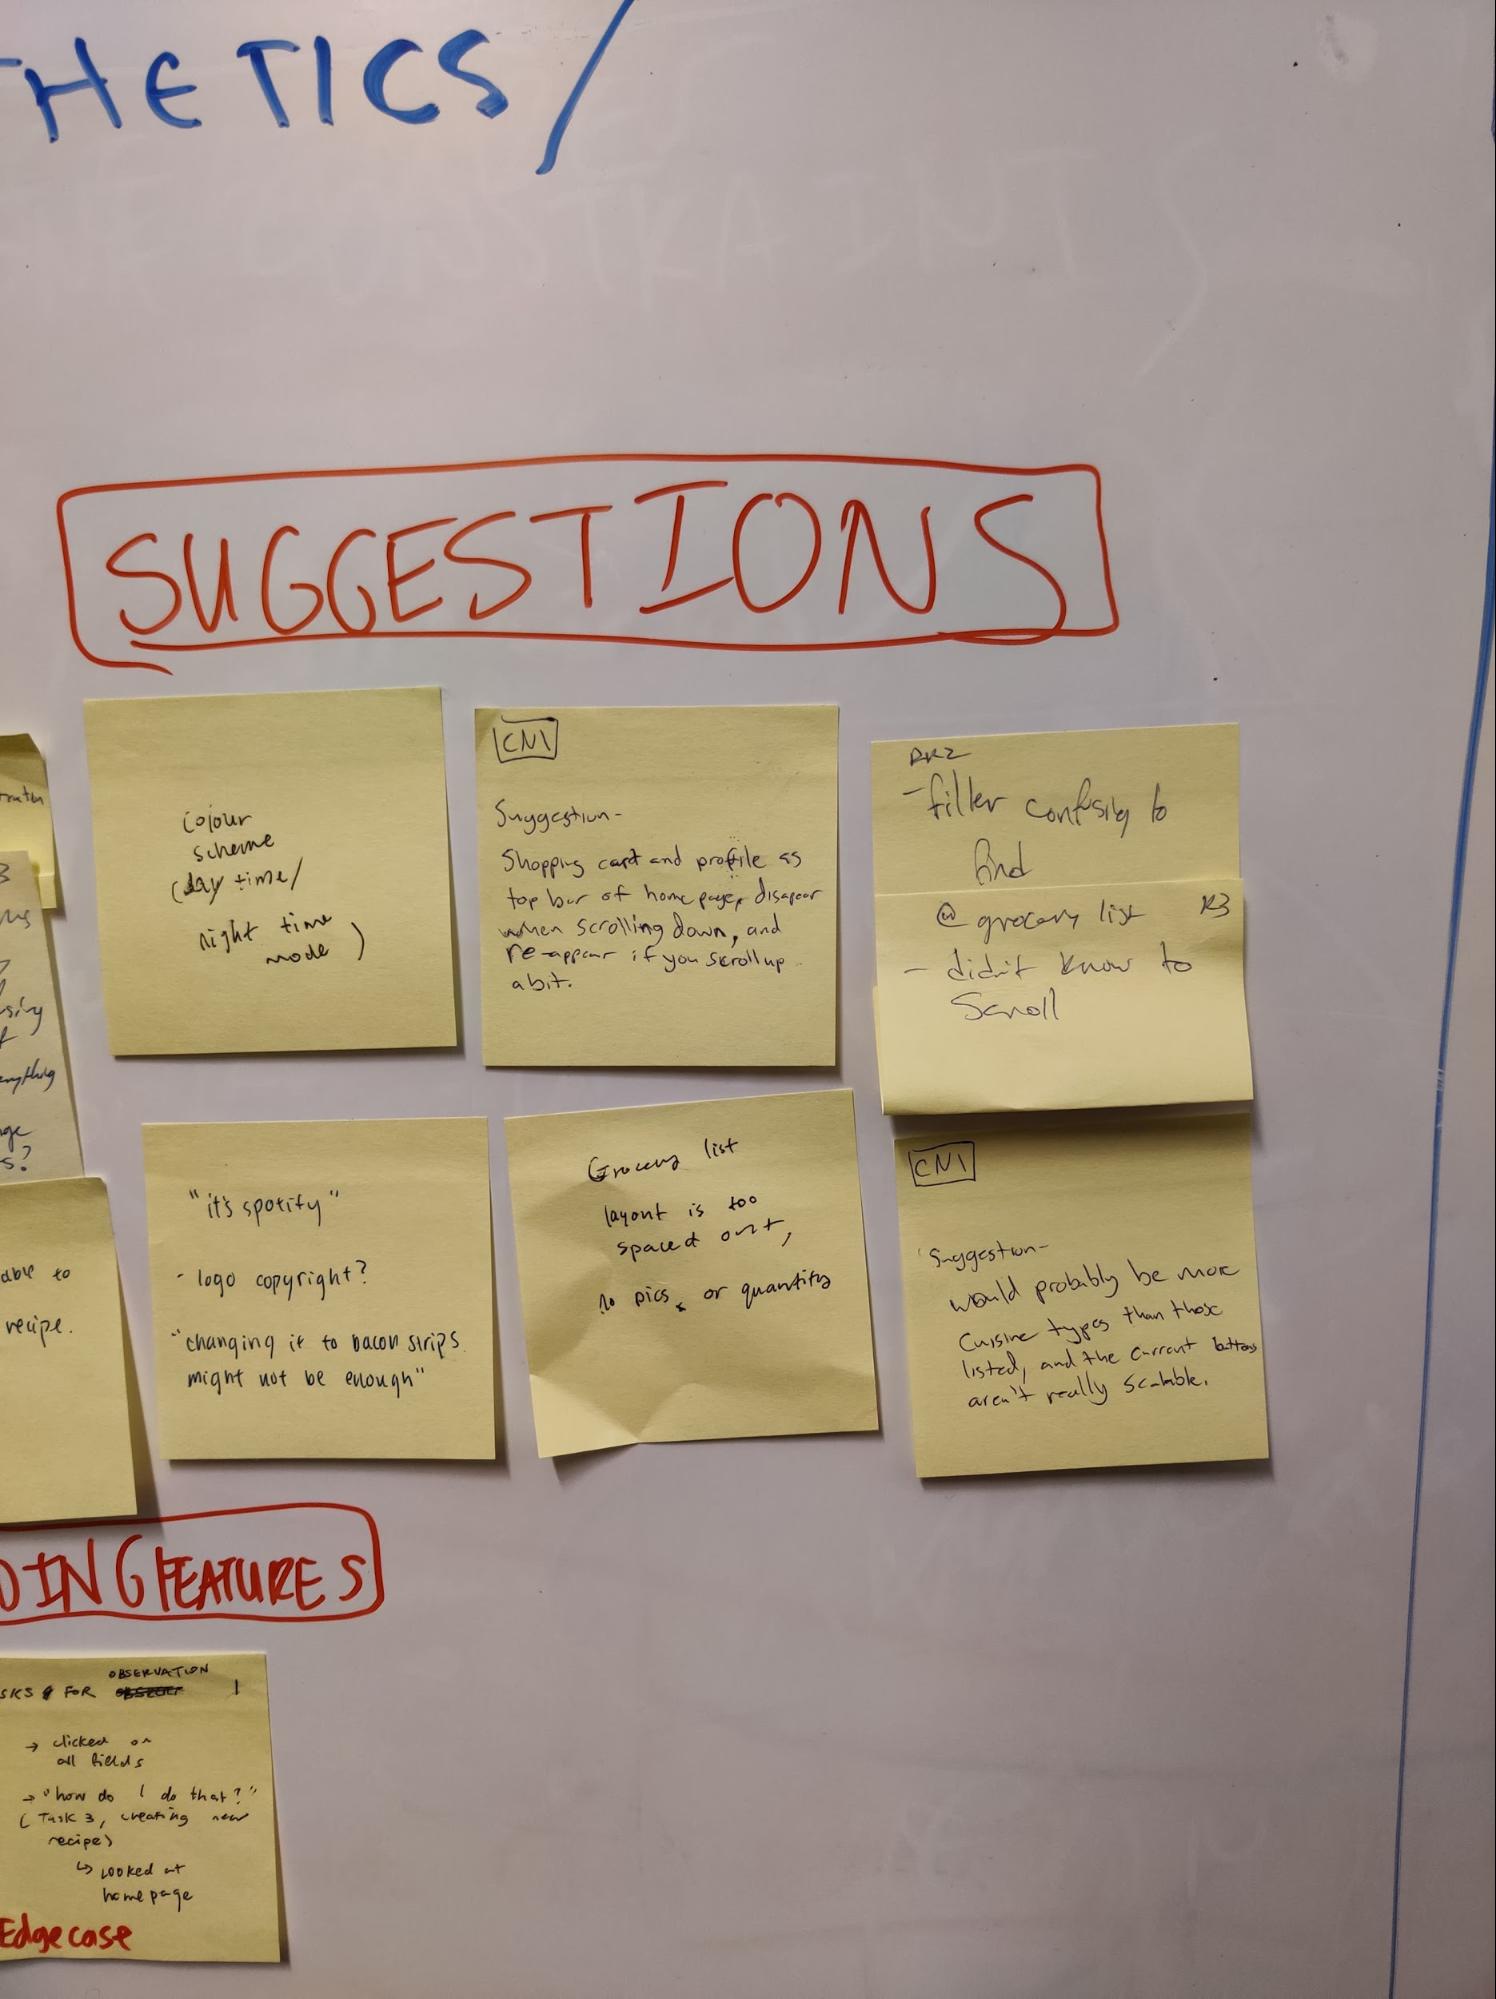 THETICS/
SUGGESTIONS
colour
scheme
(day time/
night time
mode )
CN1
Suggestion-
Shopping cart and profile as
top bar of homepage, disapear
when scrolling down, and
re-appear if you scroll up
a bit.
- filter confusing to
find
@ grocery list R3
- didn't know to
Scroll
"it's spotify"
- logo copyright?
"changing it to bacon strips
might not be enough"
Grocery list
layout is too
spaced out,
no pics, or quantity
CN1
Suggestion-
would probably be more
Cuisine types than those
listed, and the current buttons
aren't really scalable.
able to
recipe.
DING FEATURES
OBSERVATION
SKS FOR 1
→ clicked on
all fields
→ "how do I do that?"
(Task 3, creating new
recipe)
↳ looked at
home page
Edge case